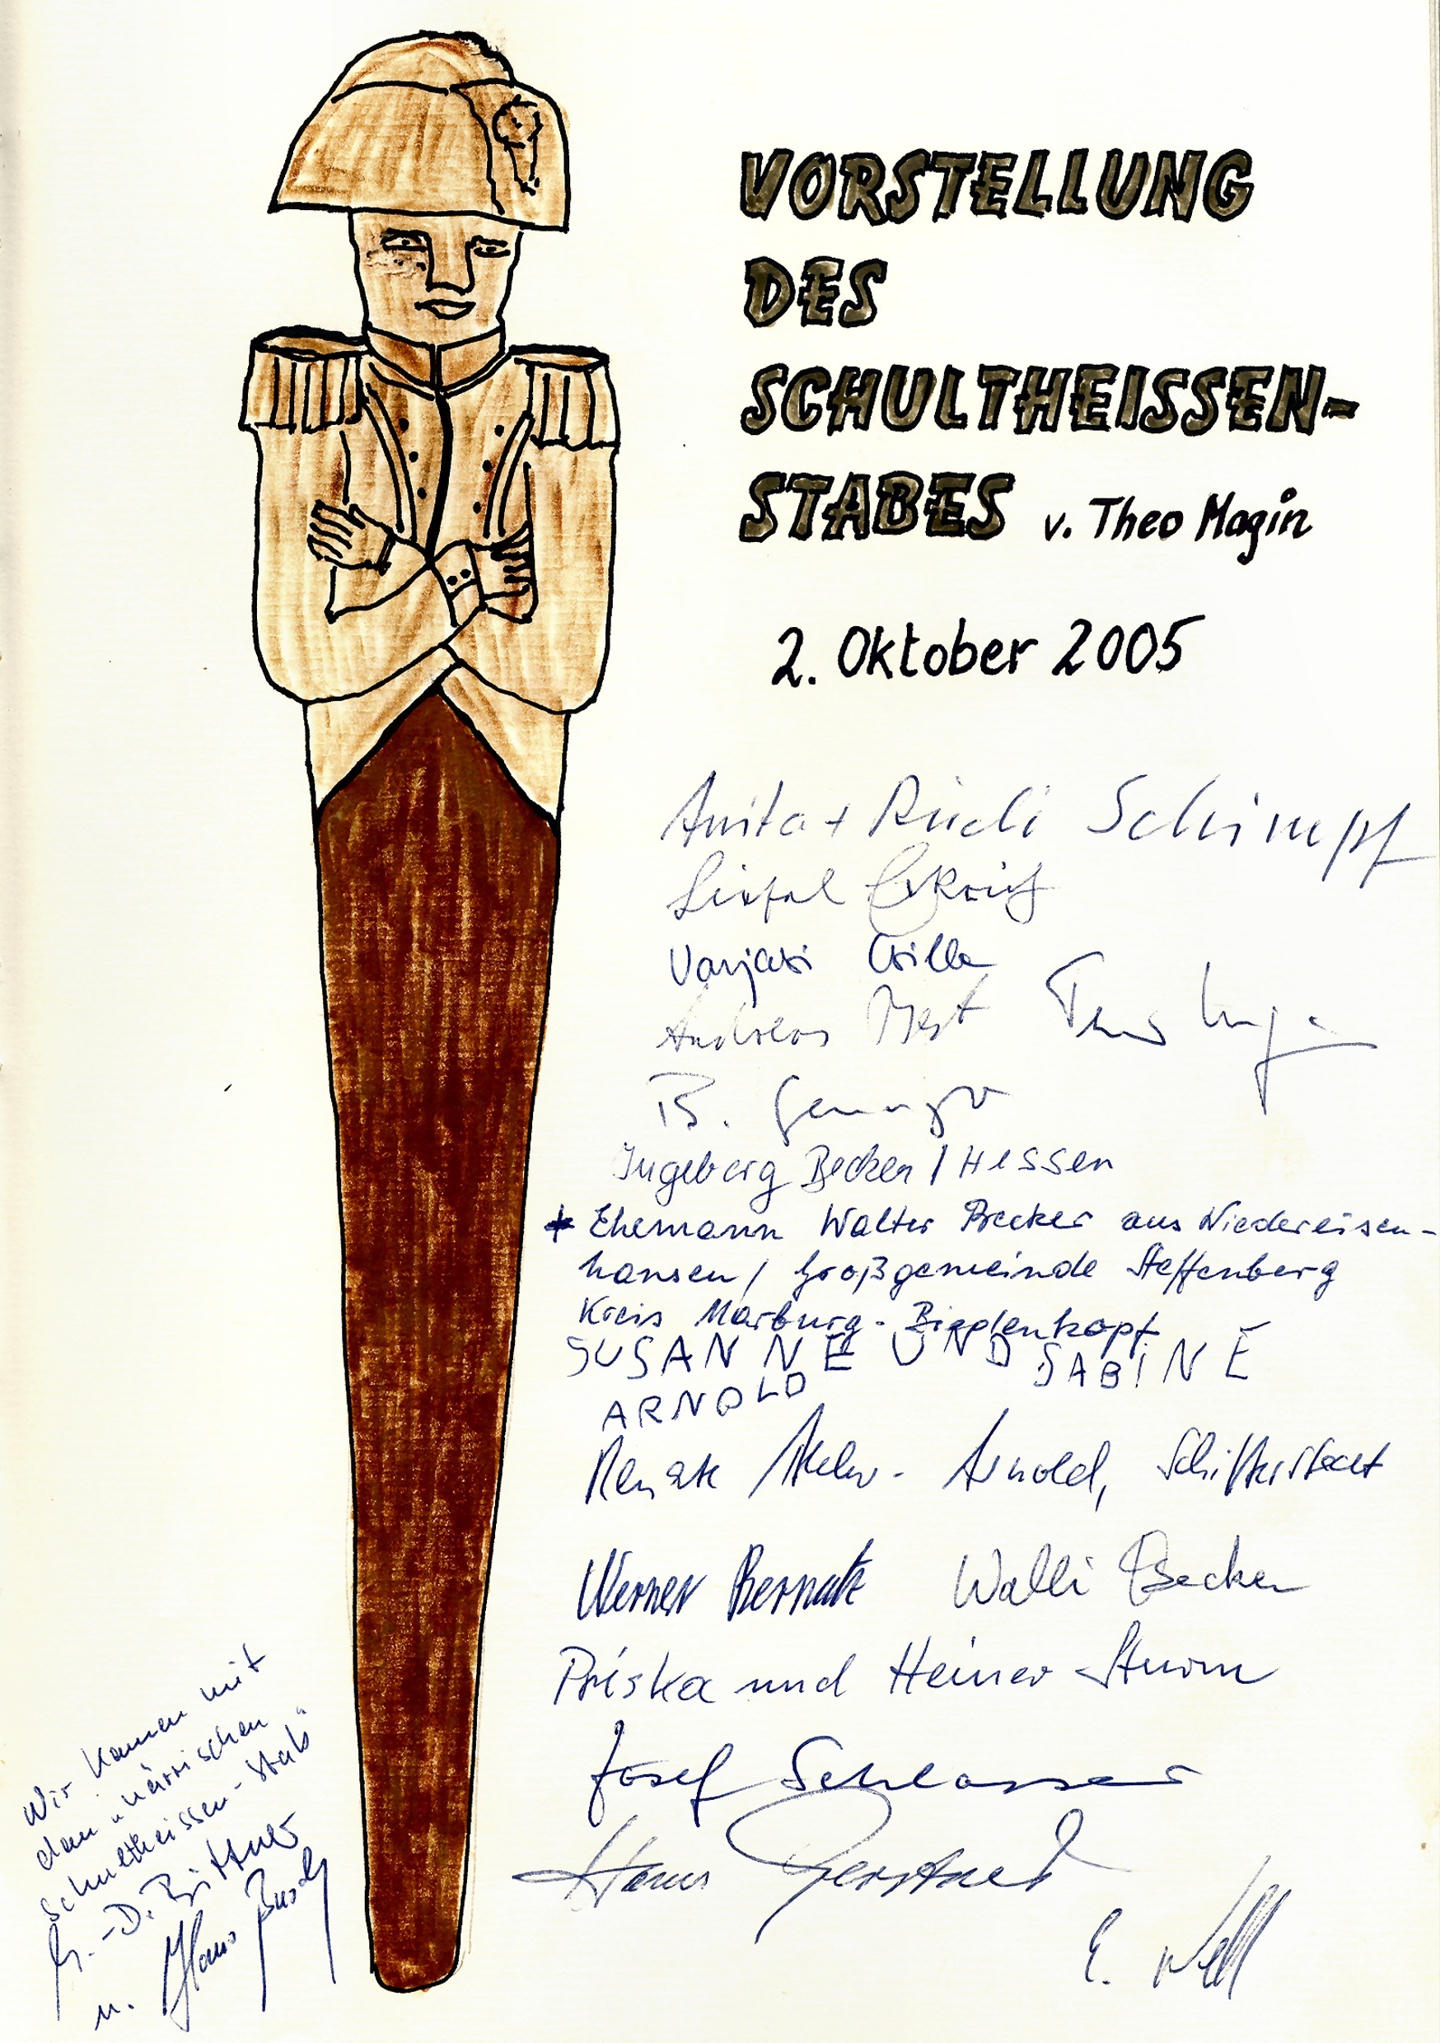 VORSTELLUNG
DES
SCHULTHEISSEN-
STABES v. Theo Magin
2. Oktober 2005
Anita + Rudi Schimpf
Andreas
B.
Ingeborg Becker / Hessen
* Ehemann Walter Becker aus Niedereisen-
hausen / Großgemeinde Steffenberg
Kreis Marburg-Biedenkopf
SUSANNE UND SABINE
ARNOLD
Renate Arnold, Schifferstadt
Werner Bernatz Walli Becker
Priska und Heiner Sturm
Josef Schlosser
Hans Gerstner
E.
Wir kamen mit
dem „närrischen
Schultheissen-Stab"
H.-D. Bittner
u. Hans